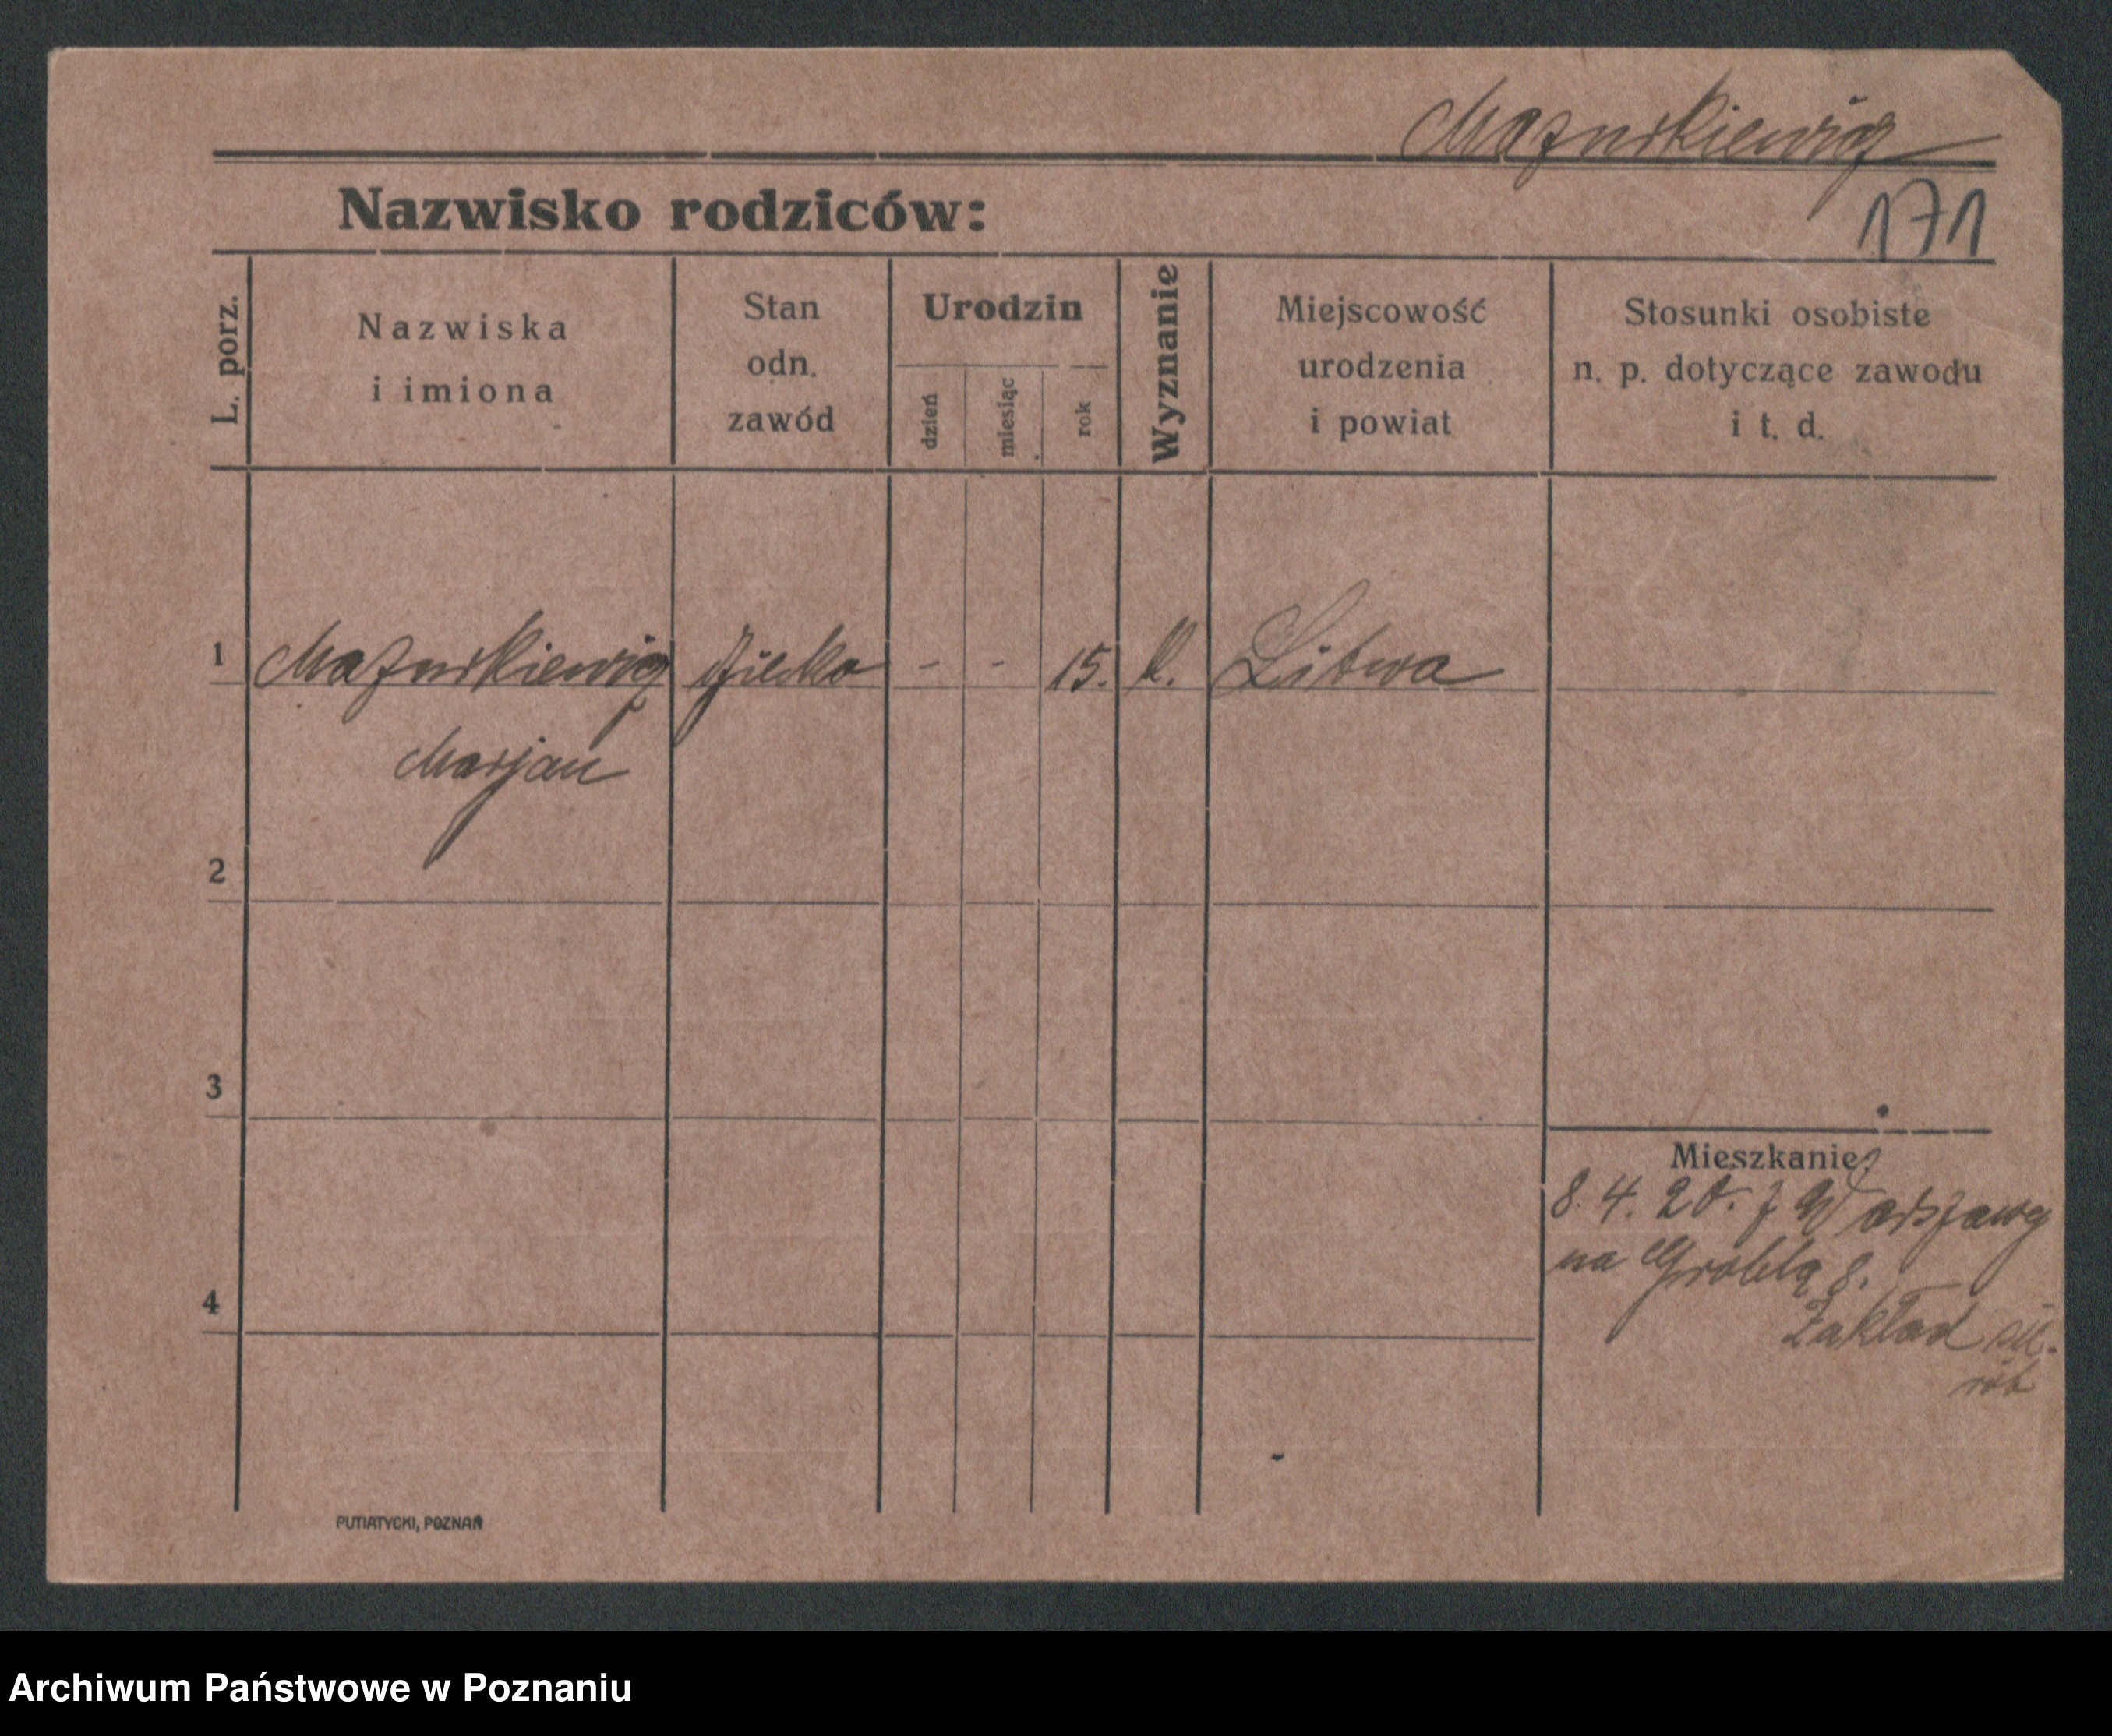 Mazurkiewicz
Nazwisko rodziców:
171
L. porz.
Nazwiska
i imiona
Stan
odn.
zawód
Urodzin
dzień
miesiąc
rok
Wyznanie
Miejscowość
urodzenia
i powiat
Stosunki osobiste
n. p. dotyczące zawodu
i t. d.
1 Mazurkiewicz dziecko - - 15. k. Litwa
Marjan
2
3
4
Mieszkanie:
8. 4. 20. z Warszawy
na Groblą 8.
Zakład sie-
rót
PUTIATYCKI, POZNAŃ
Archiwum Państwowe w Poznaniu